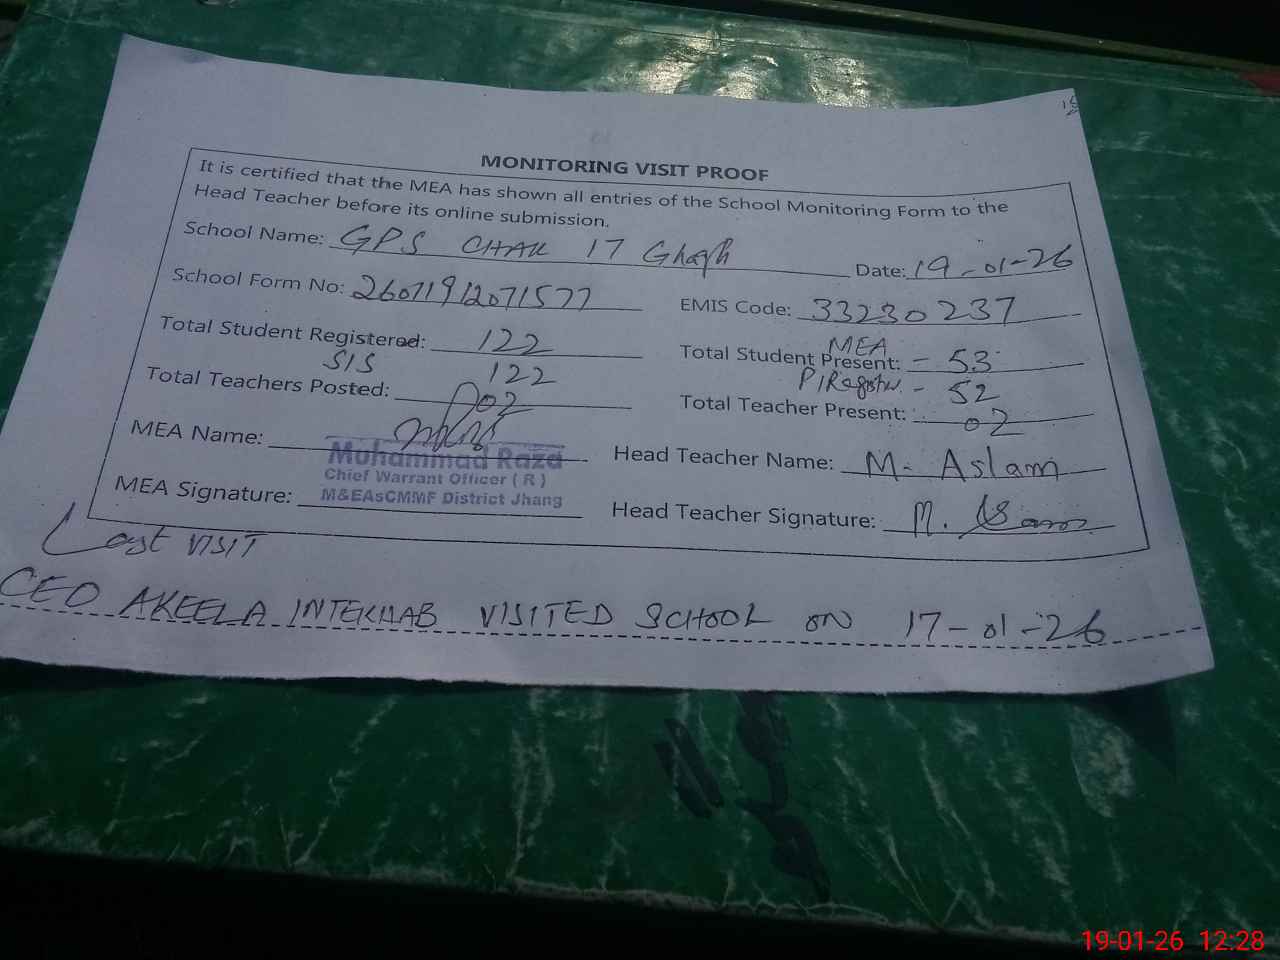 MONITORING VISIT PROOF
It is certified that the MEA has shown all entries of the School Monitoring Form to the
Head Teacher before its online submission.
School Name: GPS CHAK 17 Ghagh Date: 19-01-26
School Form No: 26071912071577 EMIS Code: 33230237
Total Student Registered: 122 Total Student Present: MEA - 53
SIS 122 P/Register - 52
Total Teachers Posted: 02 Total Teacher Present: 02
MEA Name: Head Teacher Name: M. Aslam
Muhammad Raza
Chief Warrant Officer ( R )
M&EAsCMMF District Jhang
MEA Signature: Head Teacher Signature: M. Aslam
Last VISIT
CEO AKEELA INTEKHAB VISITED SCHOOL ON 17-01-26
19-01-26 12:28